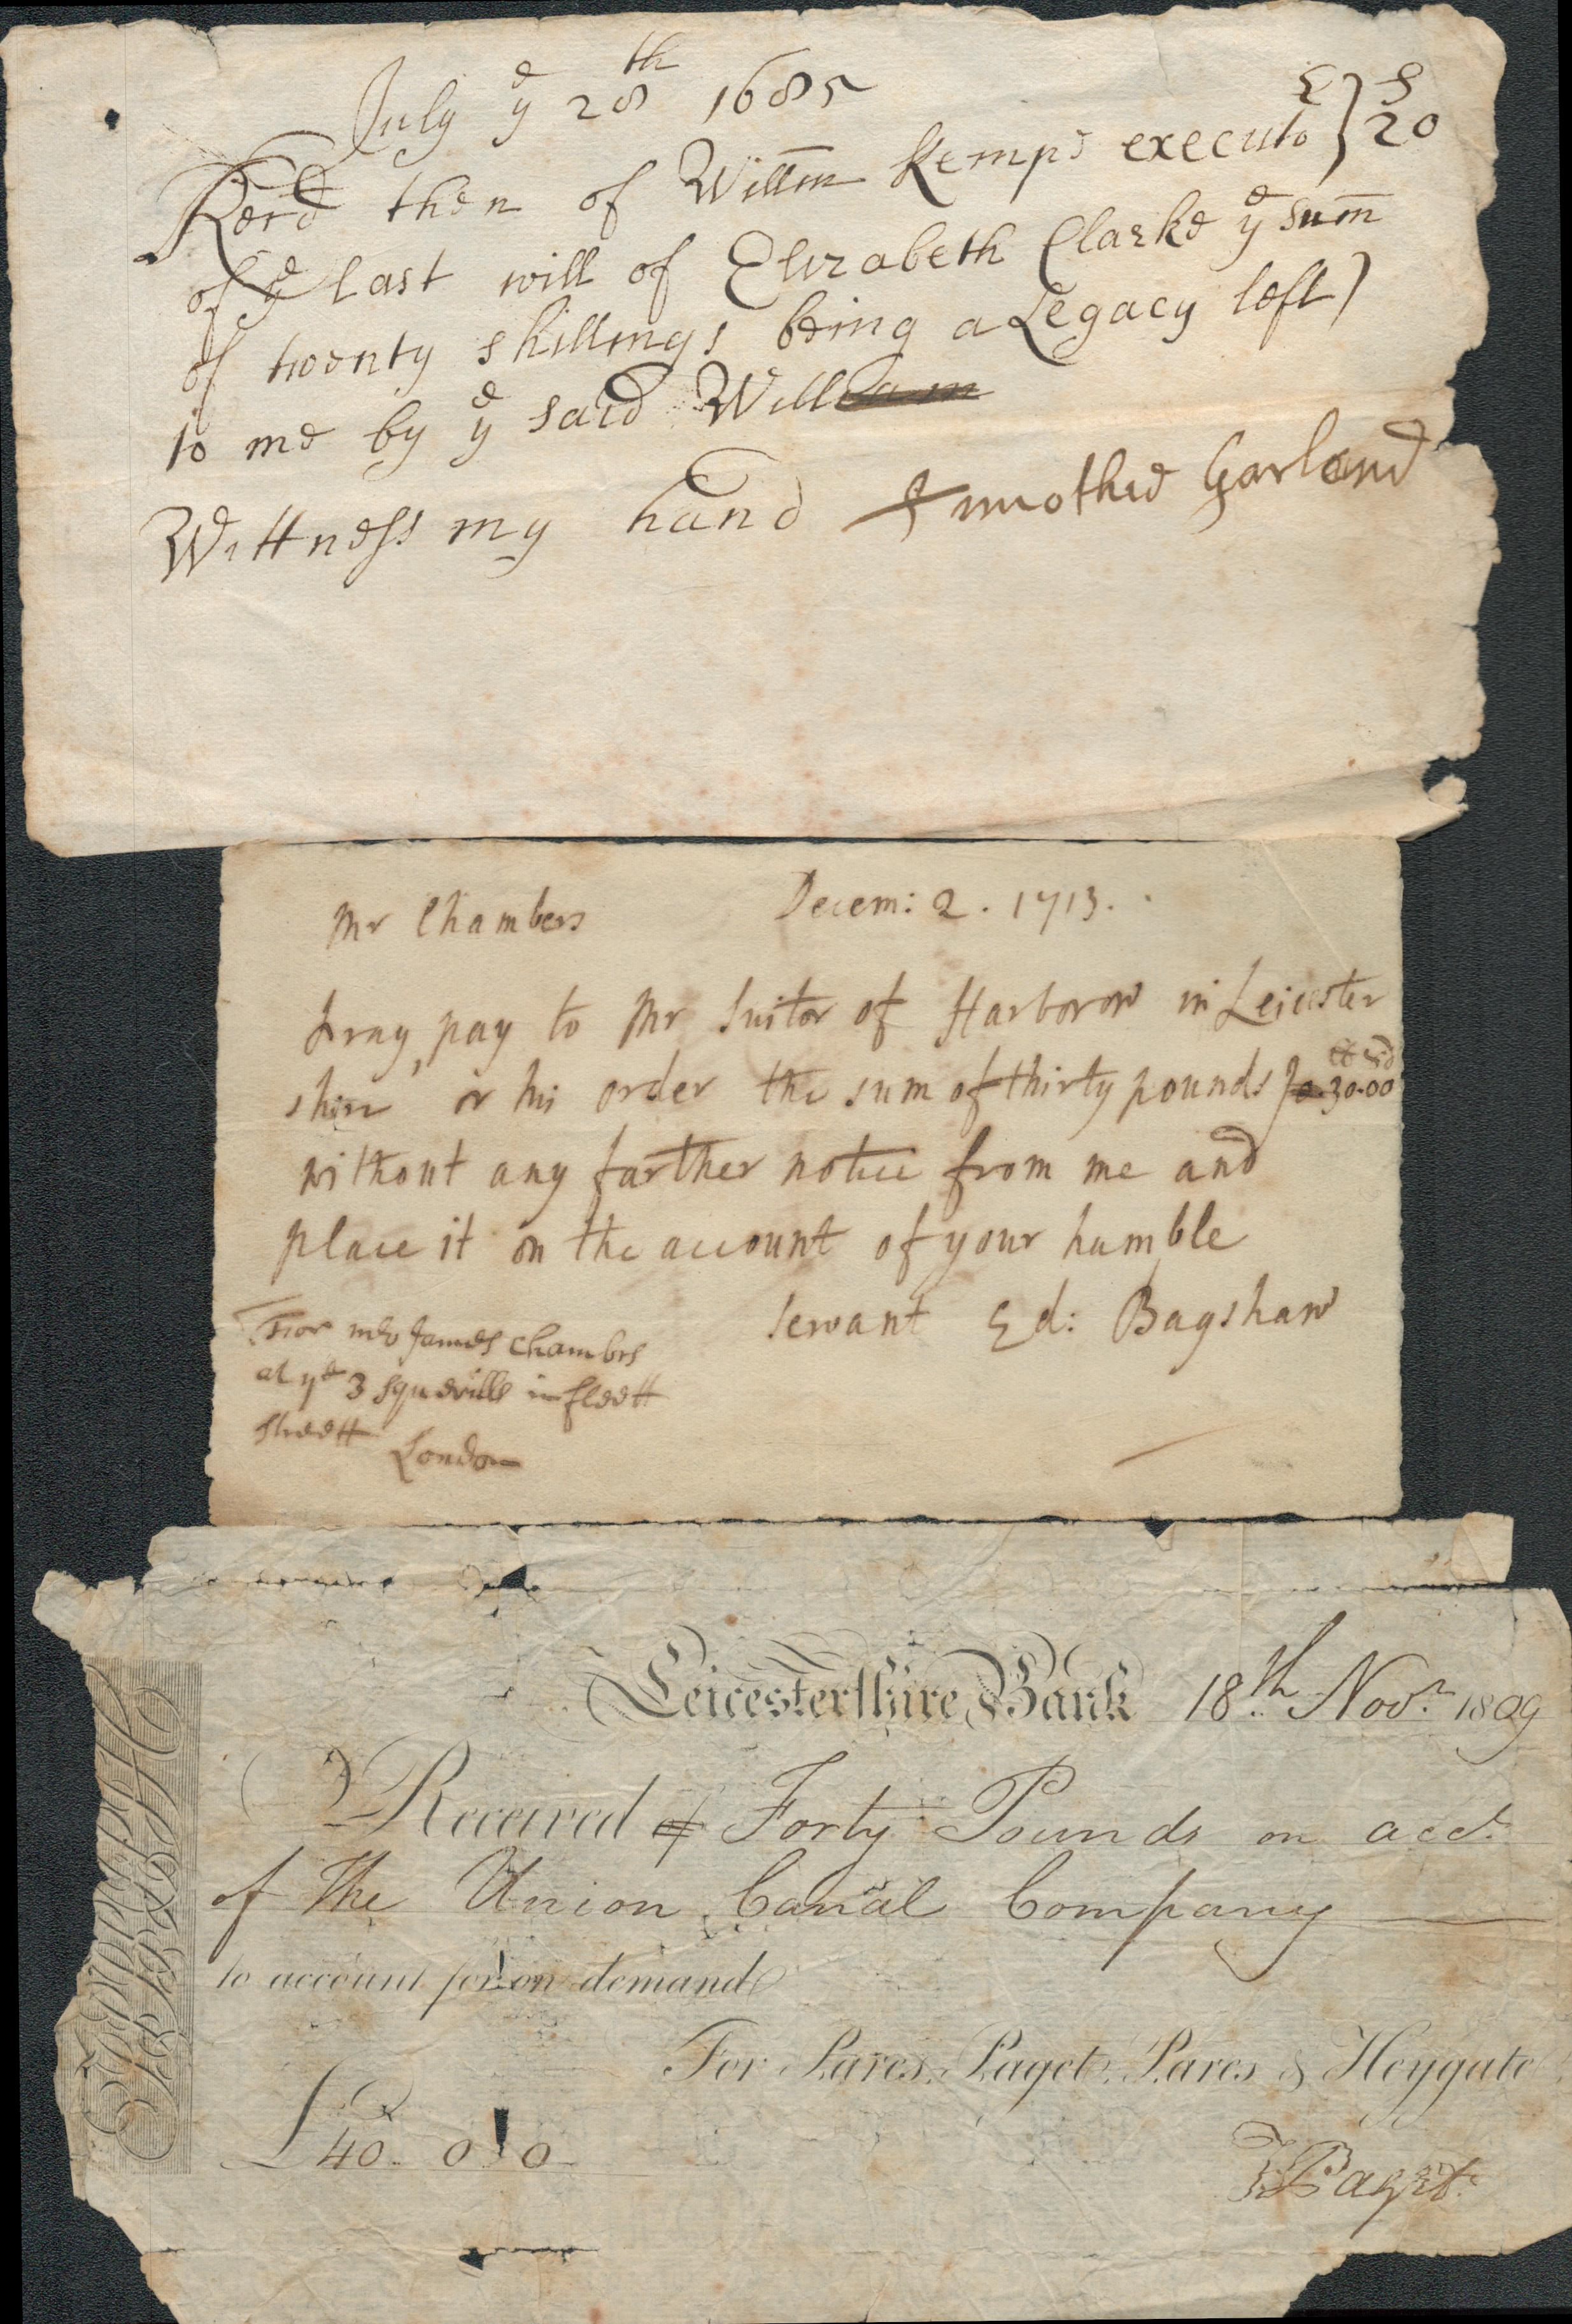 July yᵉ 28ᵗʰ 1685
£ } S
Recᵈ then of Willm Kempe executo } 20
of yᵉ last will of Elizabeth Clarke yᵉ sum̅
of twenty shillings being a Legacy left
to me by yᵉ said Will
Wittness my hand Timothie Garland
Mr Chambers Decem: 2. 1713.
pray pay to Mr Suitor of Harborow in Leicester
shire or his order the sum of thirty pounds 30.00
without any farther notice from me and
place it on the account of your humble
servant Ed: Bagshaw
For James Chambrs
at yᵉ 3 in fleett
streett London
Leicestershire Bank 18th Novr. 1809
Received of Forty Pounds on acct.
of The Union Canal Company
to account for on demand
For Pares, Paget, Pares & Heygate
£40. 0. 0
Paget